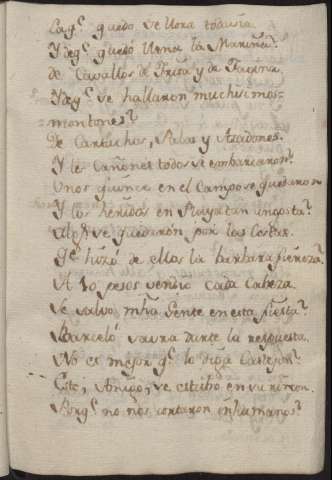 Lo q.e quedó se llora todavia.
Y de q.e quedó llena la Marina?
de Cavallos de Frisa y de Faxina.
Y de q.e se hallaron muchisimos
montones?
De Cartuchos, Palas y Azadones.
Y los Cañones todos se embarcaron?
Unos quince en el Campo se quedaron
Y los heridos en Playa tan angosta?
Alg.s se quedaron por las Costas.
Q.e hizo de ellos la barbara fiereza?
A 10 pesos vendio cada Cabeza.
Se salvó mha Gente en esta fiesta?
Barceló savra darte la respuesta.
No es mejor q.e lo diga Castejon?
Este, Amigo, se estubo en su rincon.
Porq.e no nos cortaron inhumanos?